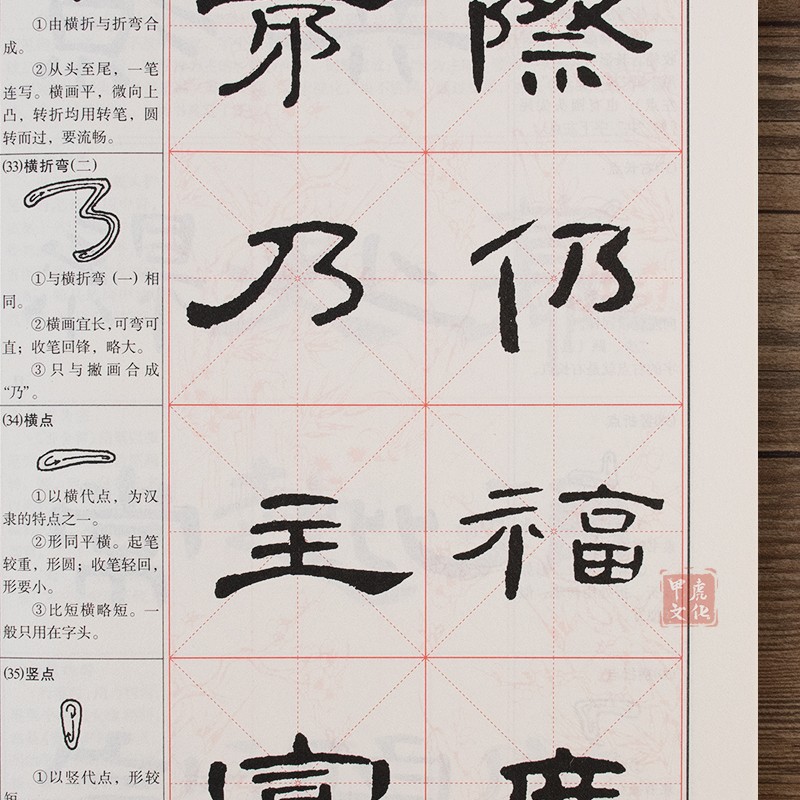 ①由横折与折弯合
成。
②从头至尾，一笔
连写。横画平，微向上
凸，转折均用转笔，圆
转而过，要流畅。
(33)横折弯(二)
①与横折弯（一）相
同。
②横画宜长，可弯可
直；收笔回锋，略大。
③只与撇画合成
“乃”。
(34)横点
①以横代点，为汉
隶的特点之一。
②形同平横。起笔
较重，形圆；收笔轻回，
形要小。
③比短横略短。一
般只用在字头。
(35)竖点
①以竖代点，形较
短
際
乃 仍
主 福
甲虎
文化